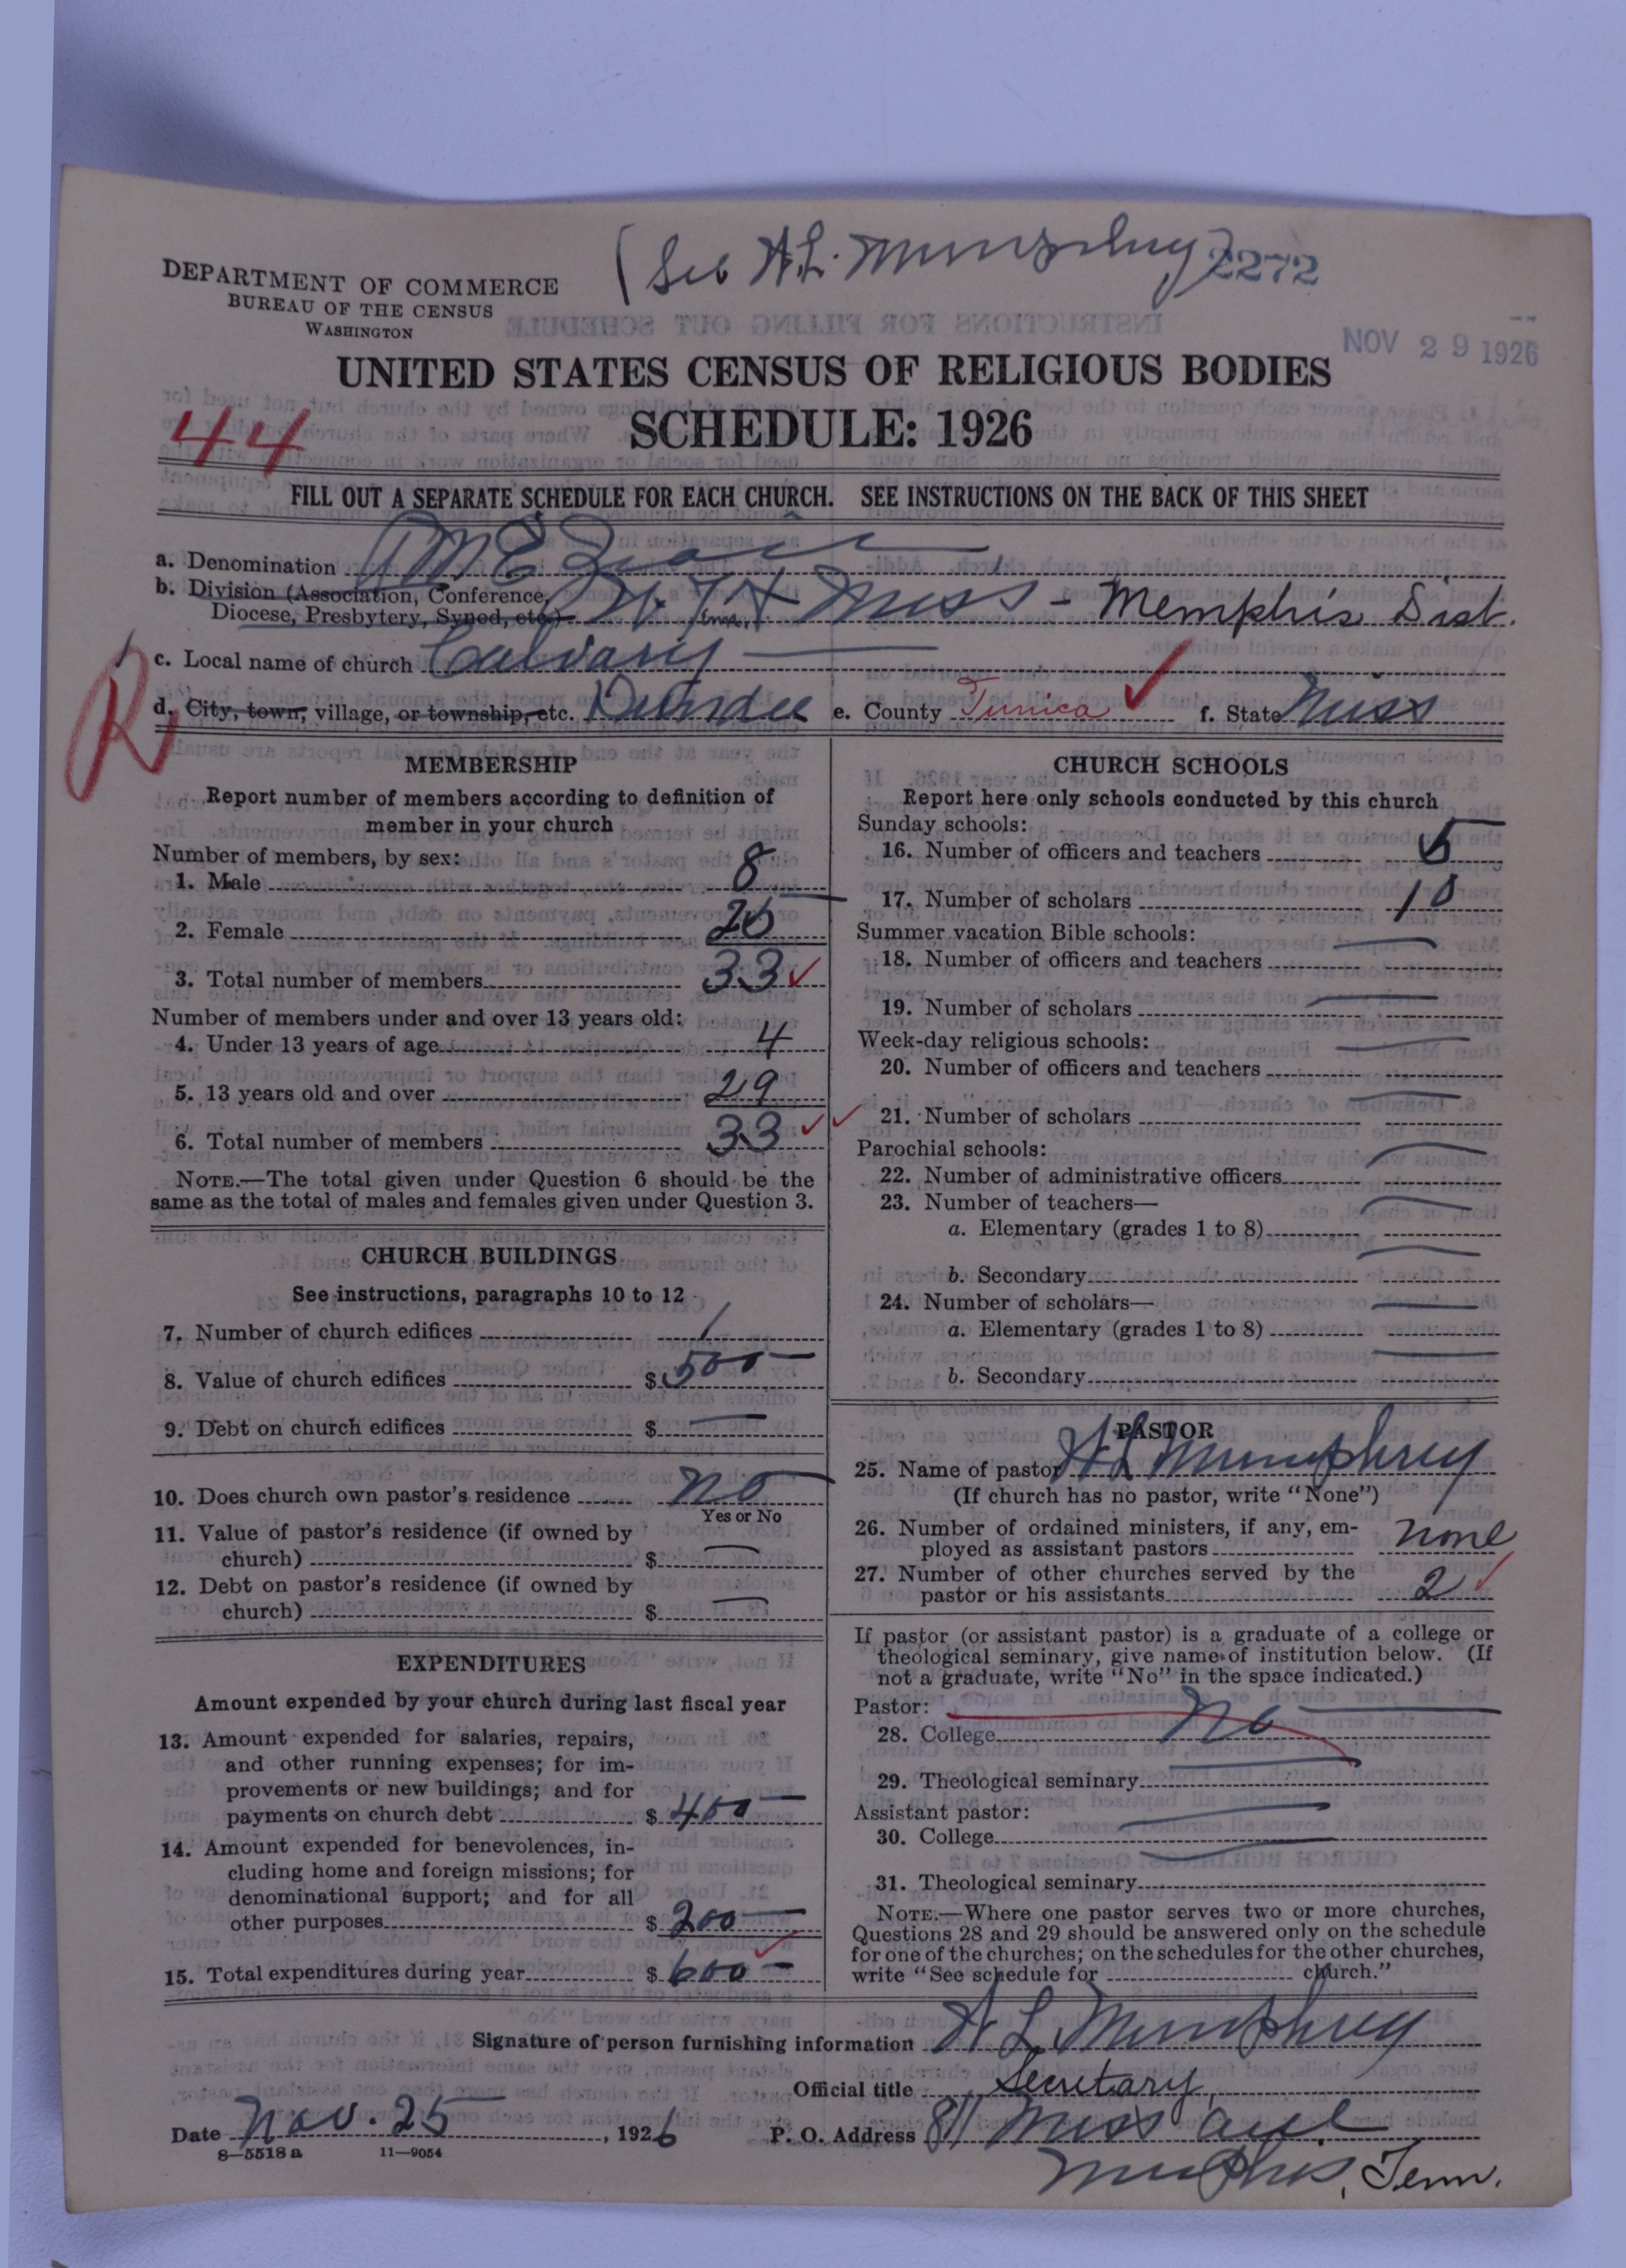 (See H.L. Mumphrey) 2272
DEPARTMENT OF COMMERCE
BUREAU OF THE CENSUS
WASHINGTON
NOV 29 1926
UNITED STATES CENSUS OF RELIGIOUS BODIES
44
SCHEDULE: 1926
FILL OUT A SEPARATE SCHEDULE FOR EACH CHURCH. SEE INSTRUCTIONS ON THE BACK OF THIS SHEET
a. Denomination A M E Zion
b. Division (Association, Conference,
Diocese, Presbytery, Synod, etc.) W. Tenn. & Miss - Memphis Dist.
c. Local name of church Calvary
R
d. City, town, village, or township, etc. Dundee e. County Tunica f. State Miss
MEMBERSHIP
Report number of members according to definition of
member in your church
Number of members, by sex:
1. Male 8
2. Female 25
3. Total number of members 33
Number of members under and over 13 years old:
4. Under 13 years of age 4
5. 13 years old and over 29
6. Total number of members 33
NOTE.—The total given under Question 6 should be the
same as the total of males and females given under Question 3.
CHURCH BUILDINGS
See instructions, paragraphs 10 to 12
7. Number of church edifices 1
8. Value of church edifices $ 500 —
9. Debt on church edifices $ —
10. Does church own pastor's residence no
Yes or No
11. Value of pastor's residence (if owned by
church) $ —
12. Debt on pastor's residence (if owned by
church) $ —
EXPENDITURES
Amount expended by your church during last fiscal year
13. Amount expended for salaries, repairs,
and other running expenses; for im-
provements or new buildings; and for
payments on church debt $ 400 —
14. Amount expended for benevolences, in-
cluding home and foreign missions; for
denominational support; and for all
other purposes $ 200 —
15. Total expenditures during year $ 600 —
CHURCH SCHOOLS
Report here only schools conducted by this church
Sunday schools:
16. Number of officers and teachers 5
17. Number of scholars 10
Summer vacation Bible schools:
18. Number of officers and teachers —
19. Number of scholars —
Week-day religious schools:
20. Number of officers and teachers —
21. Number of scholars —
Parochial schools:
22. Number of administrative officers —
23. Number of teachers—
a. Elementary (grades 1 to 8) —
b. Secondary —
24. Number of scholars—
a. Elementary (grades 1 to 8) —
b. Secondary —
PASTOR
25. Name of pastor H L Mumphrey
(If church has no pastor, write "None")
26. Number of ordained ministers, if any, em-
ployed as assistant pastors none
27. Number of other churches served by the
pastor or his assistants 2
If pastor (or assistant pastor) is a graduate of a college or
theological seminary, give name of institution below. (If
not a graduate, write "No" in the space indicated.)
Pastor:
28. College No
29. Theological seminary —
Assistant pastor:
30. College —
31. Theological seminary —
NOTE.—Where one pastor serves two or more churches,
Questions 28 and 29 should be answered only on the schedule
for one of the churches; on the schedules for the other churches,
write "See schedule for church."
Signature of person furnishing information H L Mumphrey
Official title Secretary
Date Nov. 25, 1926 P. O. Address 811 Miss ave
8—5518 a 11—9054
Memphis, Tenn.